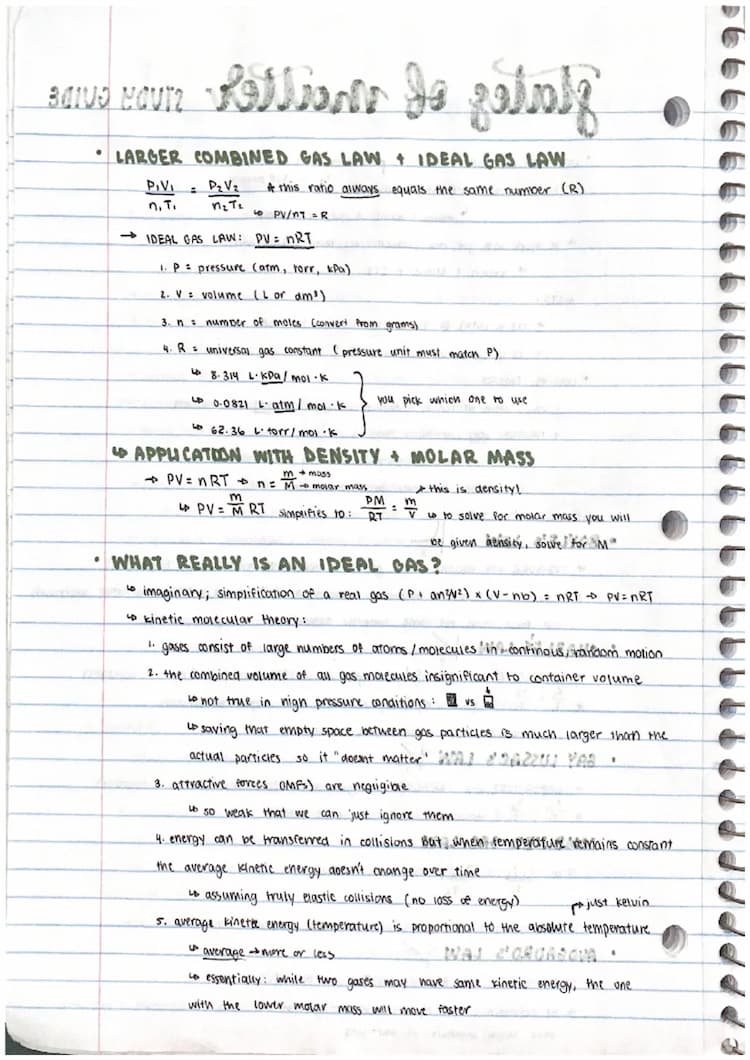 states of matter STUDY GUIDE
• LARGER COMBINED GAS LAW + IDEAL GAS LAW
P₁V₁/n₁T₁ = P₂V₂/n₂T₂ * this ratio always equals the same number (R)
↳ PV/nT = R
→ IDEAL GAS LAW: PV = nRT
1. P = pressure (atm, torr, kPa)
2. V = volume (L or dm³)
3. n = number of moles (convert from grams)
4. R = universal gas constant (pressure unit must match P)
↳ 8.314 L·kPa/mol·K
↳ 0.0821 L·atm/mol·K } you pick which one to use
↳ 62.36 L·torr/mol·K
↳ APPLICATION WITH DENSITY + MOLAR MASS
→ PV = nRT → n = m/M → mass → molar mass ↗ this is density!
↳ PV = m/M RT simplifies to: PM/RT = m/V ↳ to solve for molar mass you will
be given density, solve for M
• WHAT REALLY IS AN IDEAL GAS?
↳ imaginary; simplification of a real gas (P + an²/V²) × (V - nb) = nRT → PV = nRT
↳ kinetic molecular theory:
1. gases consist of large numbers of atoms/molecules in continous, random motion
2. the combined volume of all gas molecules insignificant to container volume
↳ not true in high pressure conditions: vs
↳ saying that empty space between gas particles is much larger than the
actual particles so it "doesnt matter"
GAY LUSSAC'S LAW •
3. attractive forces (IMFs) are negligible
↳ so weak that we can just ignore them
4. energy can be transferred in collisions but when temperature remains constant
the average kinetic energy doesn't change over time
↳ assuming truly elastic collisions (no loss of energy) ↱ just kelvin
5. average kinetic energy (temperature) is proportional to the absolute temperature
↳ average → more or less
AVOGADRO'S LAW •
↳ essentially: while two gases may have same kinetic energy, the one
with the lower molar mass will move faster